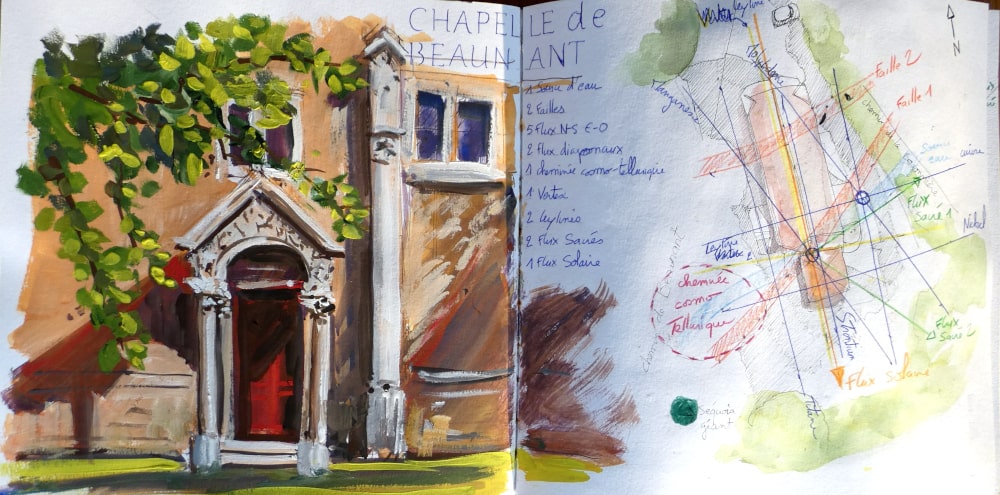 CHAPELLE de
BEAUNANT
1 Source d'eau
2 Failles
5 Flux N-S E-O
2 Flux diagonaux
1 cheminée cosmo-tellurique
1 Vortex
2 Leylines
2 Flux Sacrés
1 Flux Solaire
Leyline
N
Faille 2
Faille 1
Manganèse
eau
cuivre
Flux
Sacré 1
Nickel
Leyline
cheminée
cosmo
Tellurique
Strontium
Flux
Sacré 2
Flux Solaire
Séquoia
géant